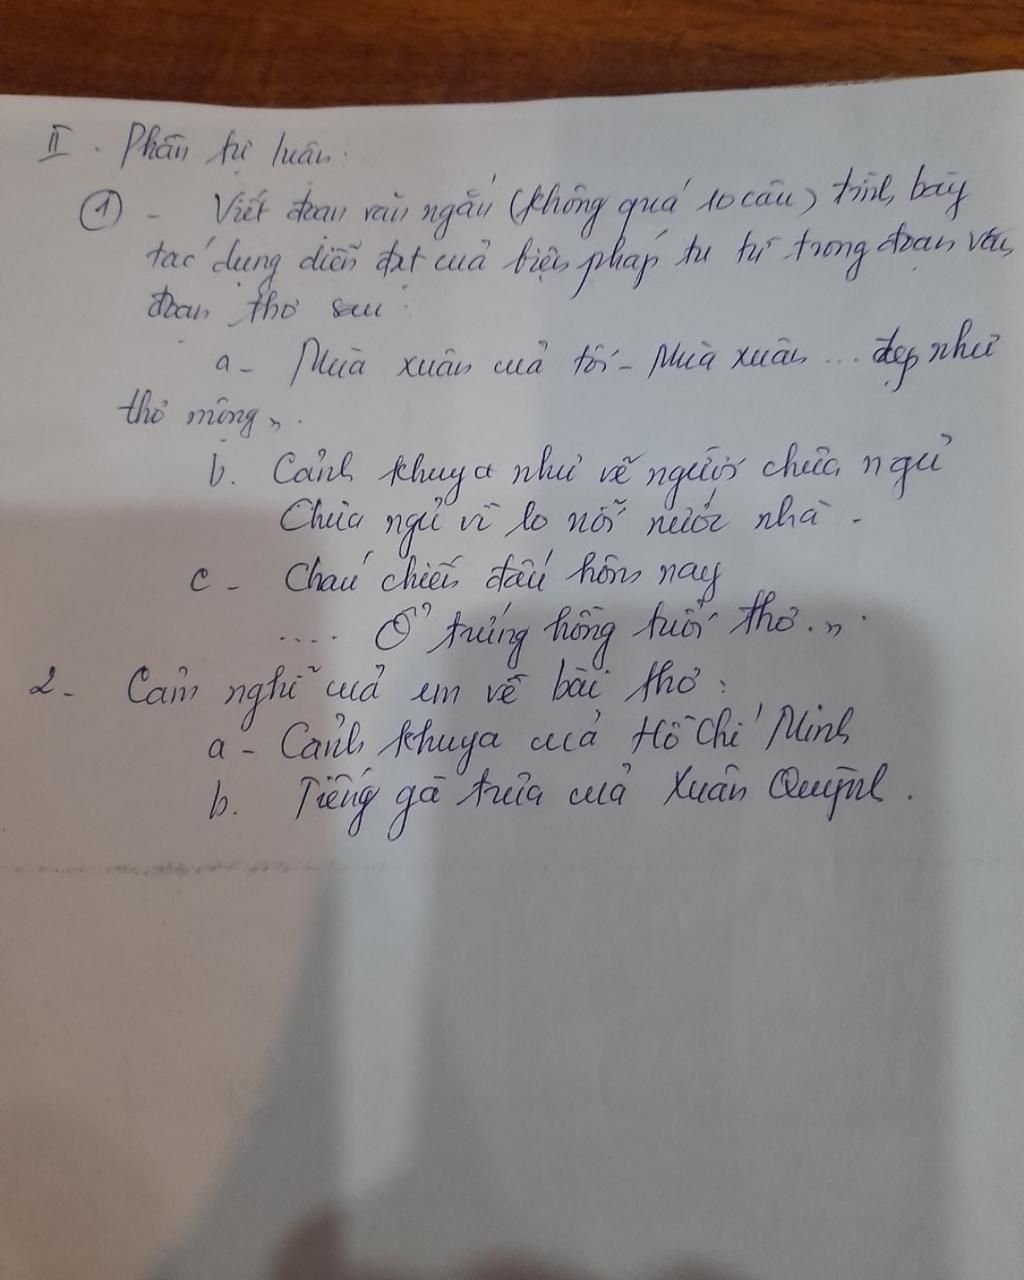 II. Phần tự luận:
① - Viết đoạn văn ngắn (không quá 10 câu) trình bày
tác dụng diễn đạt của biện pháp tu từ trong đoạn văn,
đoạn thơ sau:
a - Mùa xuân của tôi - Mùa xuân ... đẹp như
thơ mộng".
b. Cảnh khuya như vẽ người chưa ngủ
Chưa ngủ vì lo nỗi nước nhà.
c - Cháu chiến đấu hôm nay
.... Ổ trứng hồng tuổi thơ.".
2 - Cảm nghĩ của em về bài thơ:
a - Cảnh khuya của Hồ Chí Minh
b. Tiếng gà trưa của Xuân Quỳnh.